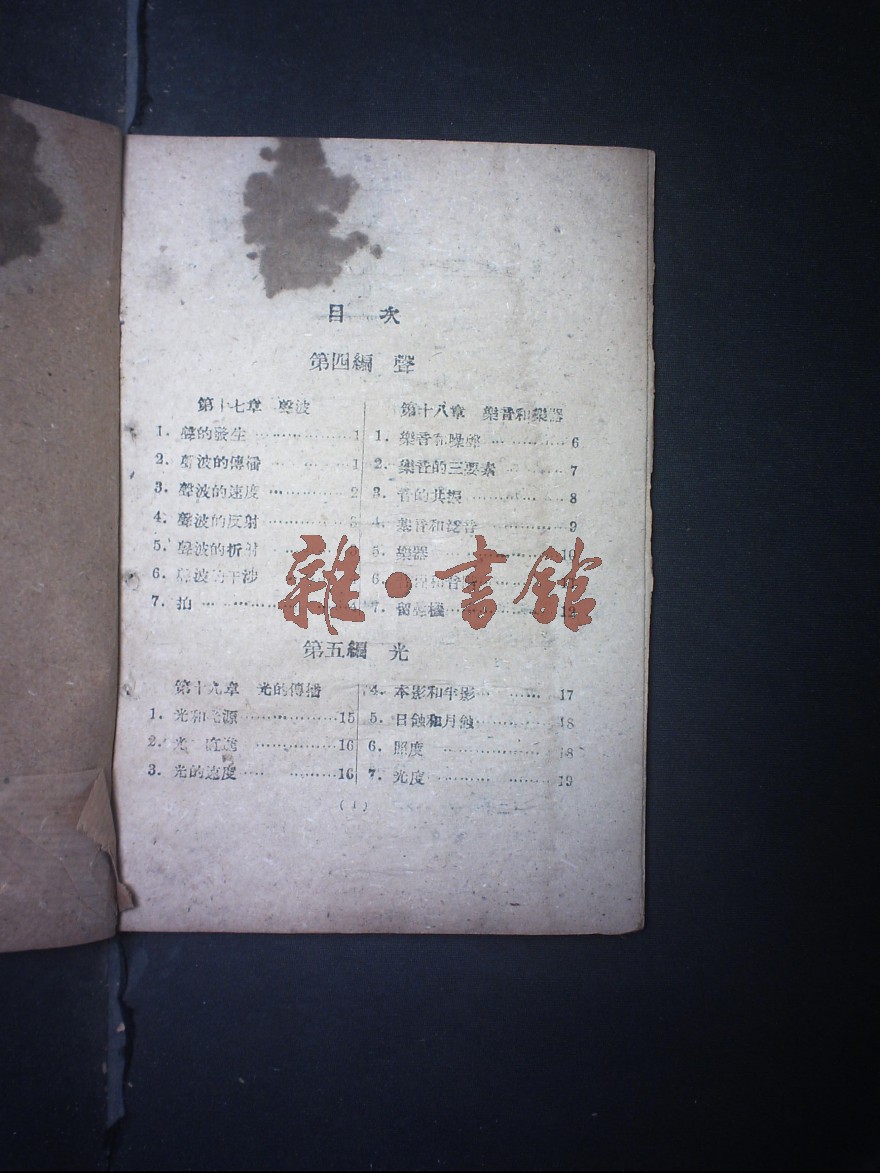 目 次
第四編 聲
第十七章 聲波
1. 聲的發生 ……………1
2. 聲波的傳播 ……………1
3. 聲波的速度 ……………2
4. 聲波的反射 ……………3
5. 聲波的折射
6. 聲波的干涉
7. 拍 ……………
第十八章 樂音和樂器
1. 樂音和噪聲 ……………6
2. 樂音的三要素 ……………7
3. 音的共振 ……………8
4. 基音和泛音 ……………9
5. 樂器 ……………10
6. 和音
7. 留聲機 ……………12
雜·書館
第五編 光
第十九章 光的傳播
1. 光和光源 ……………15
2. 光 直進 ……………16
3. 光的速度 ……………16
4. 本影和半影 ……………17
5. 日蝕和月蝕 ……………18
6. 照度 ……………18
7. 光度 ……………19
(1)